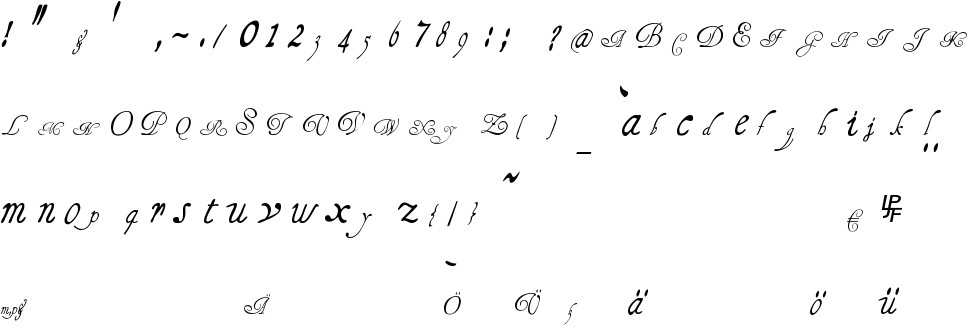 ! " & ' , ~ . / 0 1 2 3 4 5 6 7 8 9 : ; ? @ A B C D E F G H I J K
L M N O P Q R S T U V W X Y Z [ ] _ ` a b c d e f g h i j k l ¨
m n o p q r s t u v w x y z { | } ~ € LPJF
mp& Ä ¯ Ö Ü ä ö ü